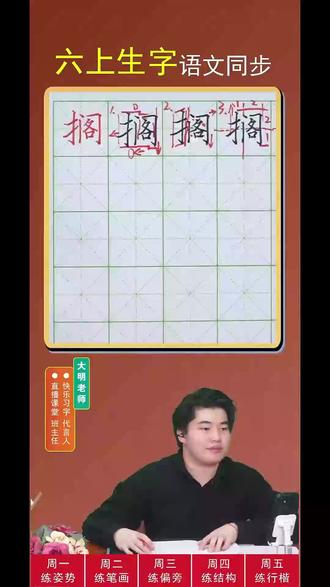 六上生字语文同步
搁 1. 搁 2. 搁 3. 搁
大明老师
快乐习字 代言人
直播课堂 班主任
周一 周二 周三 周四 周五
练姿势 练笔画 练偏旁 练结构 练行楷